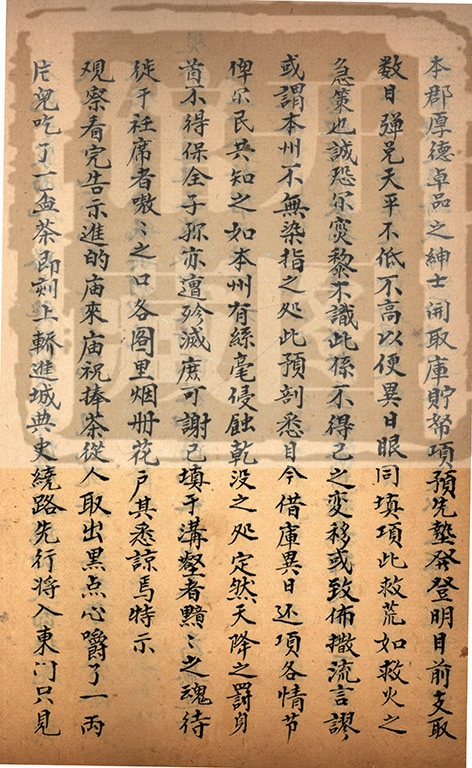 本郡厚德卓品之紳士開取庫貯帑項預先墊發登明目前支取
数目弹兑天平不低不高以便異日眼同填項此救荒如救火之
急策也誠恐尔灾黎不識此係不得已之変移或致佈撒流言謬
或謂本州不無染指之处此預剖悉目今借庫異日还項各情節
俾尔民共知之如本州有絲毫侵蝕乾没之处定然天降之罰身
首不得保全子孫亦遭殄滅庶可謝已填于溝壑者黯〻之魂待
徙于衽席者嗷〻之口各圖里烟册花户其悉諒焉特示
观察看完告示進的庙來庙祝捧茶從人取出黒点心嚼了一両
片兒吃了一盃茶即刻上轎進城典史繞路先行将入東门只見